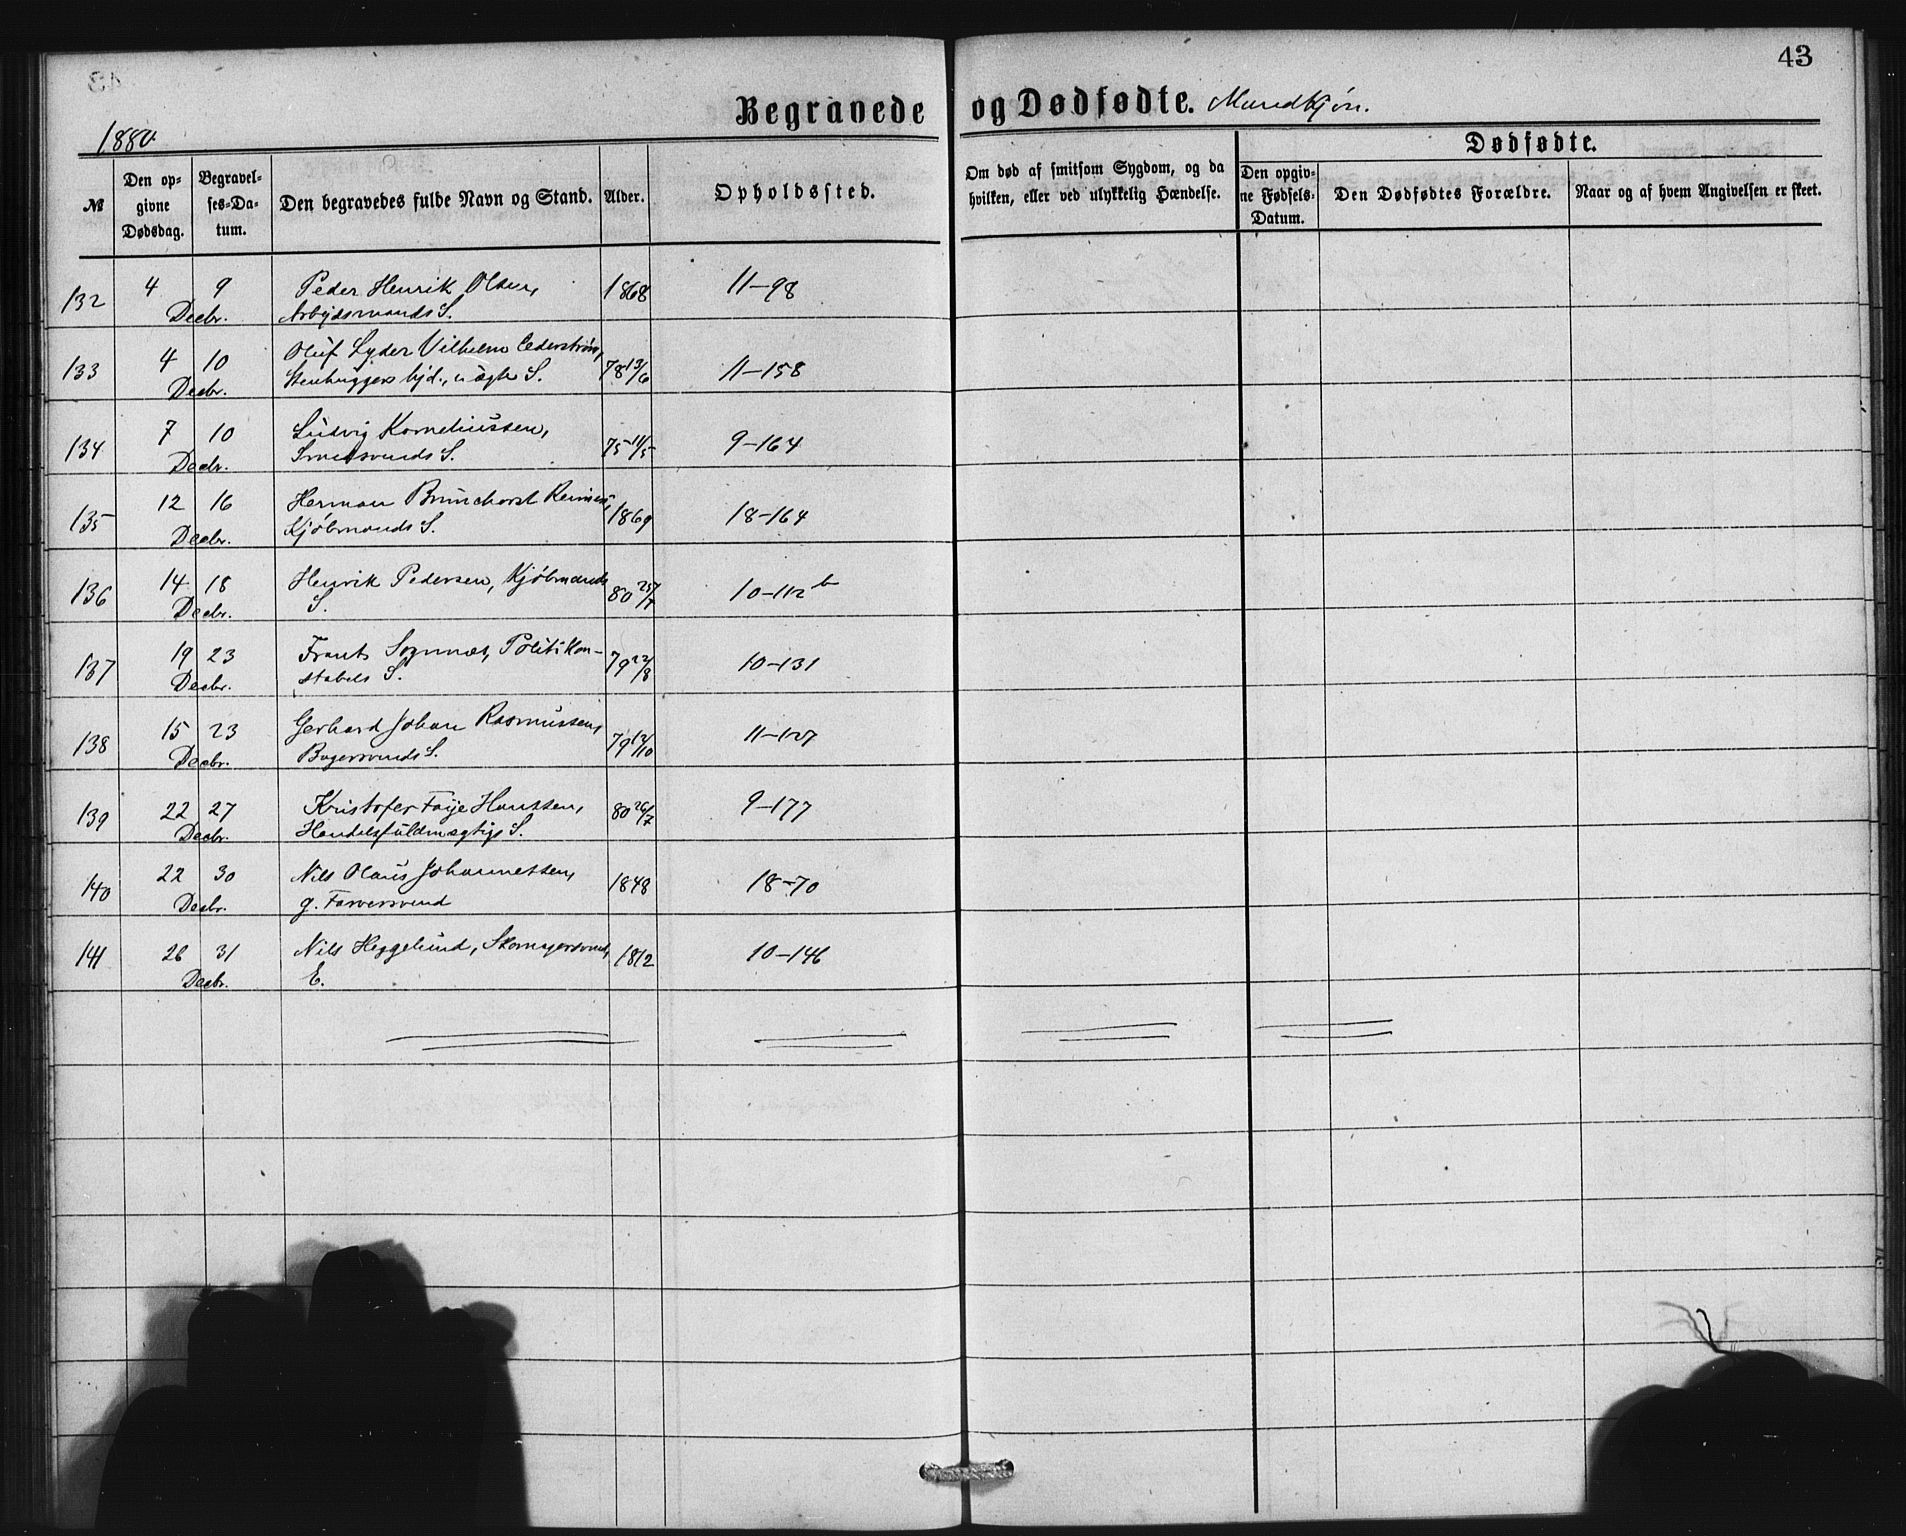 43
Begravede og Dødfødte. Mandkjøn.
1880.
Dødfødte.
№ Den opgivne Dødsdag. Begravelses-Datum. Den begravedes fulde Navn og Stand. Alder. Opholdssted. Om død af smitsom Sygdom, og da hvilken, eller ved ulykkelig Hændelse. Den opgivne Fødsels-Datum. Den Dødfødtes Forældre. Naar og af hvem Angivelsen er skeet.
132 4 9 Peder Henrik Olsen, 1868 11-98
Decbr. Arbejdsmands S.
133 4 10 Oluf Lyder Vilhelm Cederstrøm, 78 13/6 11-158
Decbr. Stenhuggers hjd., uægte S.
134 7 10 Ludvig Korneliussen, 75 11/5 9-164
Decbr. Smedsvends S.
135 12 16 Herman Brunchorst 1869 18-164
Decbr. Kjøbmands S.
136 14 18 Henrik Pedersen, Kjøbmands 80 25/7 10-112 b
Decbr. S.
137 19 23 Frants Sognnæs, Politikon- 79 22/8 10-131
Decbr. stabels S.
138 15 23 Gerhard Johan Rasmussen, 79 12/10 11-127
Decbr. Bagersvends S.
139 22 27 Kristofer Faye Hanssen, 80 26/7 9-177
Decbr. Handelsfuldmægtigs S.
140 22 30 Nils Olaus Johannessen, 1848 18-70
Decbr. g. Farversvend
141 26 31 Nils Heggelund, Skomagersvend, 1812 10-146
Decbr. E.